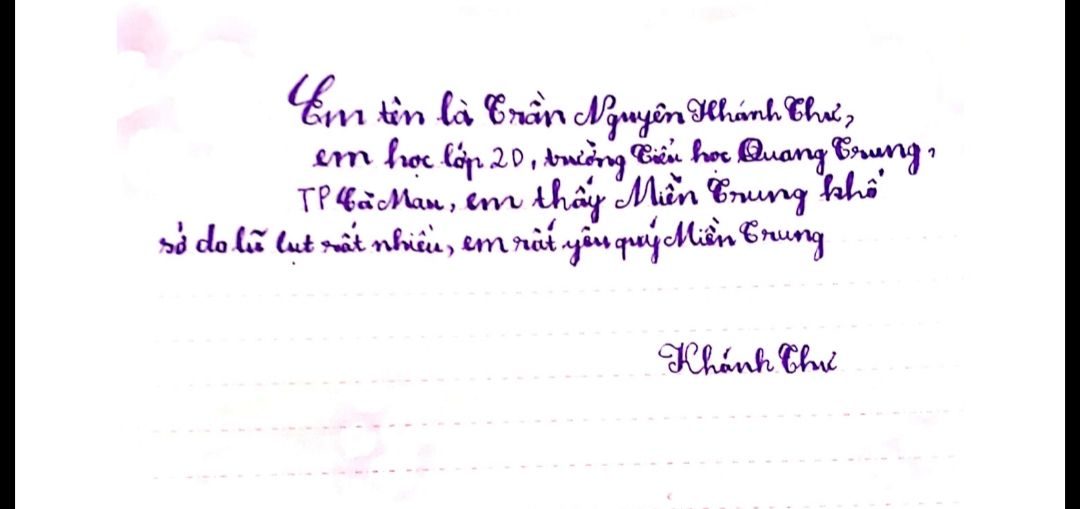 Em tên là Trần Nguyên Khánh Thư,
em học lớp 2D, trường Tiểu học Quang Trung,
TP Cà Mau, em thấy Miền Trung khổ
sở do lũ lụt rất nhiều, em rất yêu quý Miền Trung
Khánh Thư